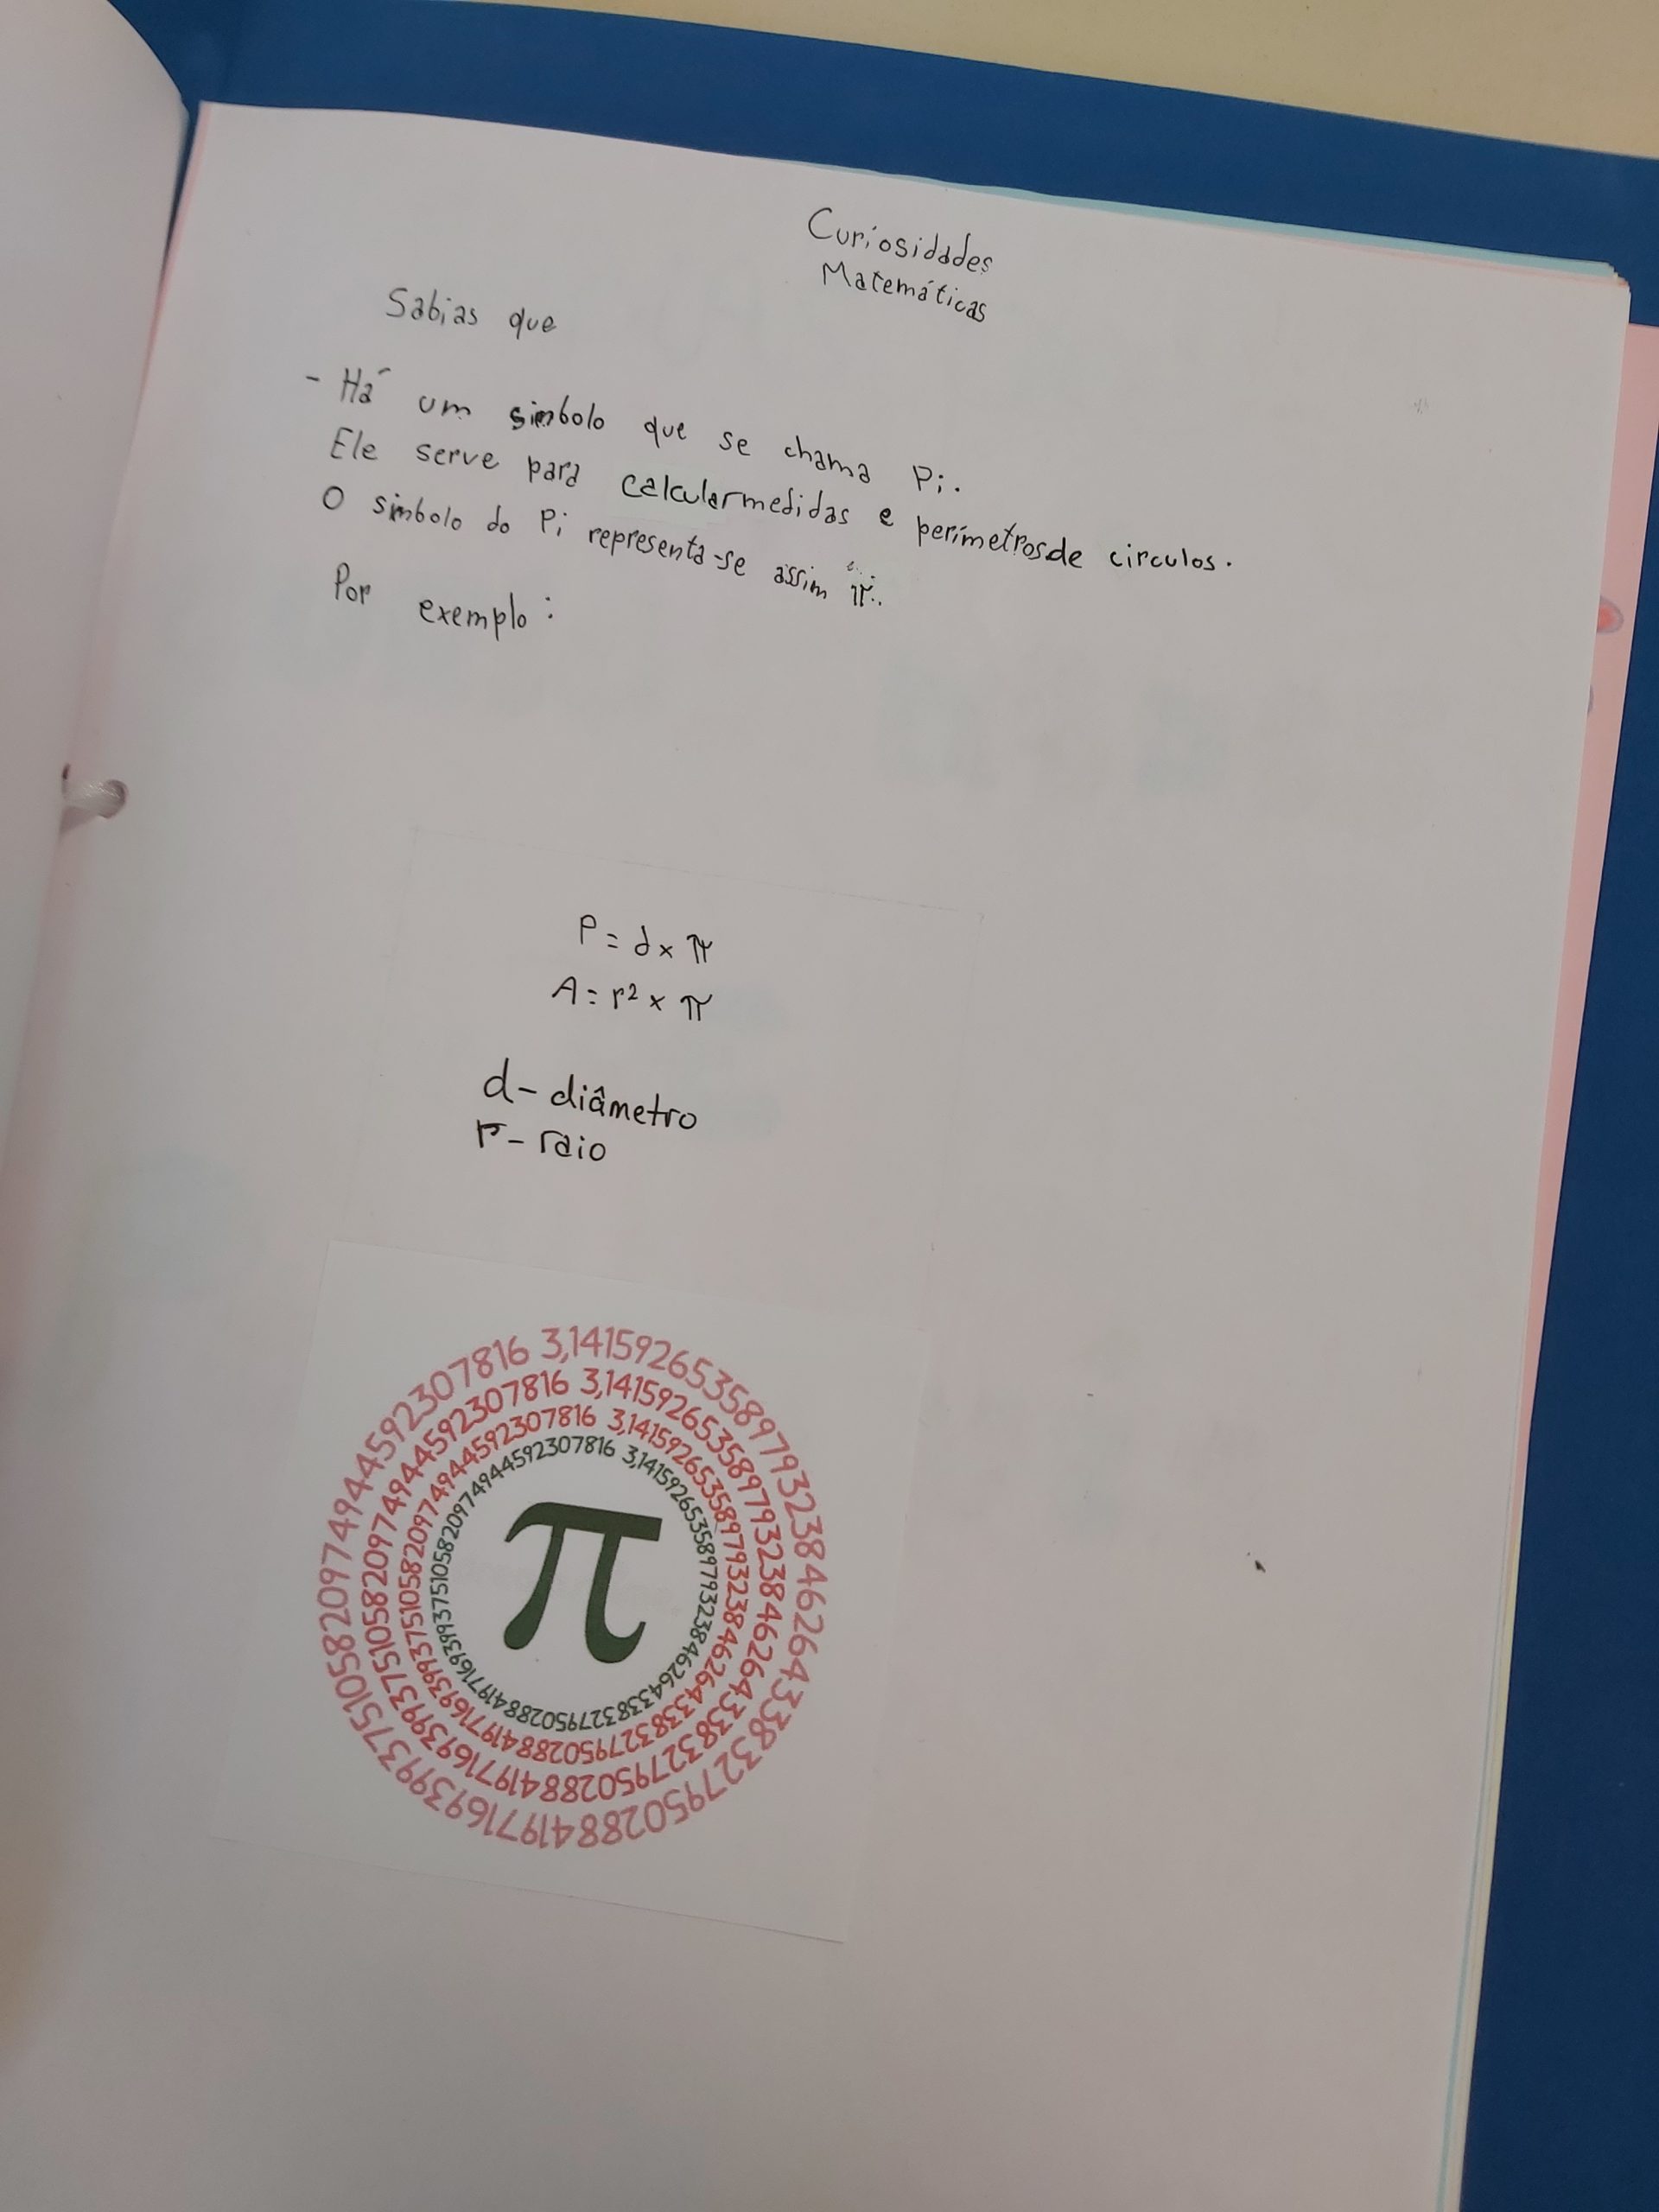 Curiosidades
Matemáticas
Sabias que
- Há um simbolo que se chama Pi.
Ele serve para calcular medidas e perímetros de circulos.
O simbolo do Pi representa-se assim π.
Por exemplo:
P = d x π
A = r² x π
d - diâmetro
r - raio
3,141592653589793238462643383279502884197169399375105820974944592307816
3,141592653589793238462643383279502884197169399375105820974944592307816
3,141592653589793238462643383279502884197169399375105820974944592307816
3,141592653589793238462643383279502884197169399375105820974944592307816
π